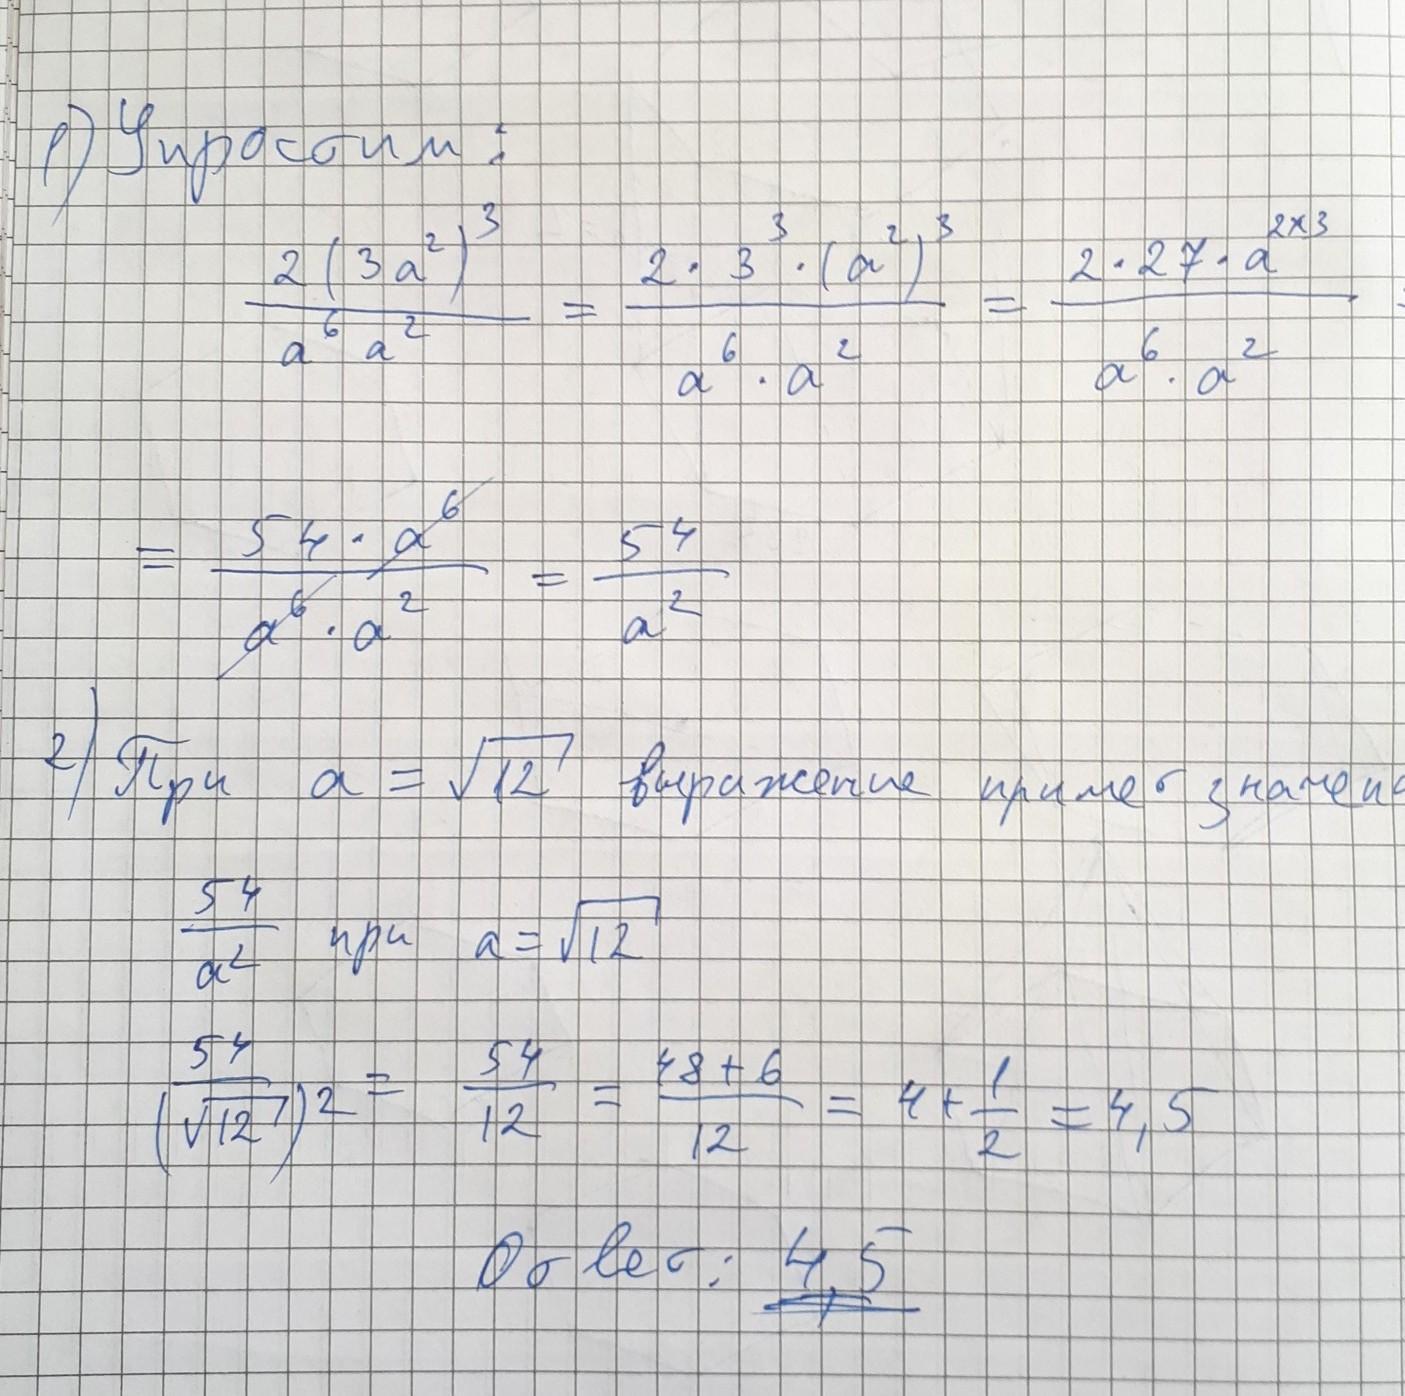 1) Упростим:
2(3a²)³ / a⁶ a² = 2 · 3³ · (a²)³ / a⁶ · a² = 2 · 27 · a²ˣ³ / a⁶ · a² =
= 54 · a⁶ / a⁶ · a² = 54 / a²
2) При a = √12 выражение примет значени
54 / a² при a = √12
54 / (√12)² = 54 / 12 = 48 + 6 / 12 = 4 + 1 / 2 = 4,5
Ответ: 4,5